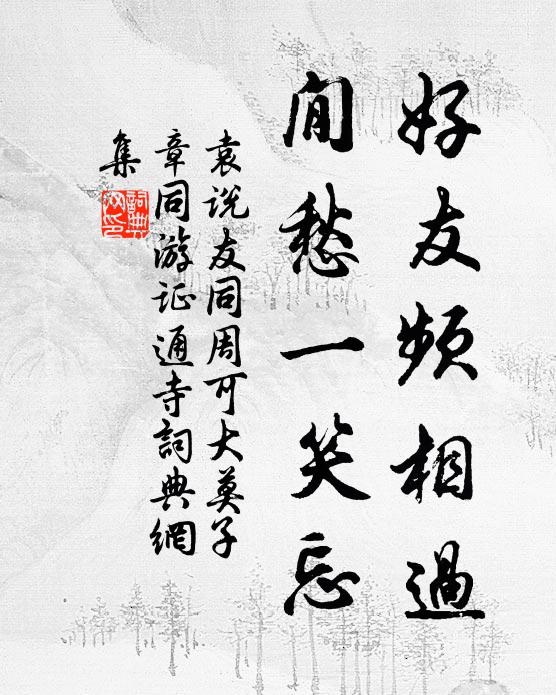 好友頻相過
閒愁一笑忘
袁说友同周可大莫子
章同游证通寺詞典網
集
詞典网印